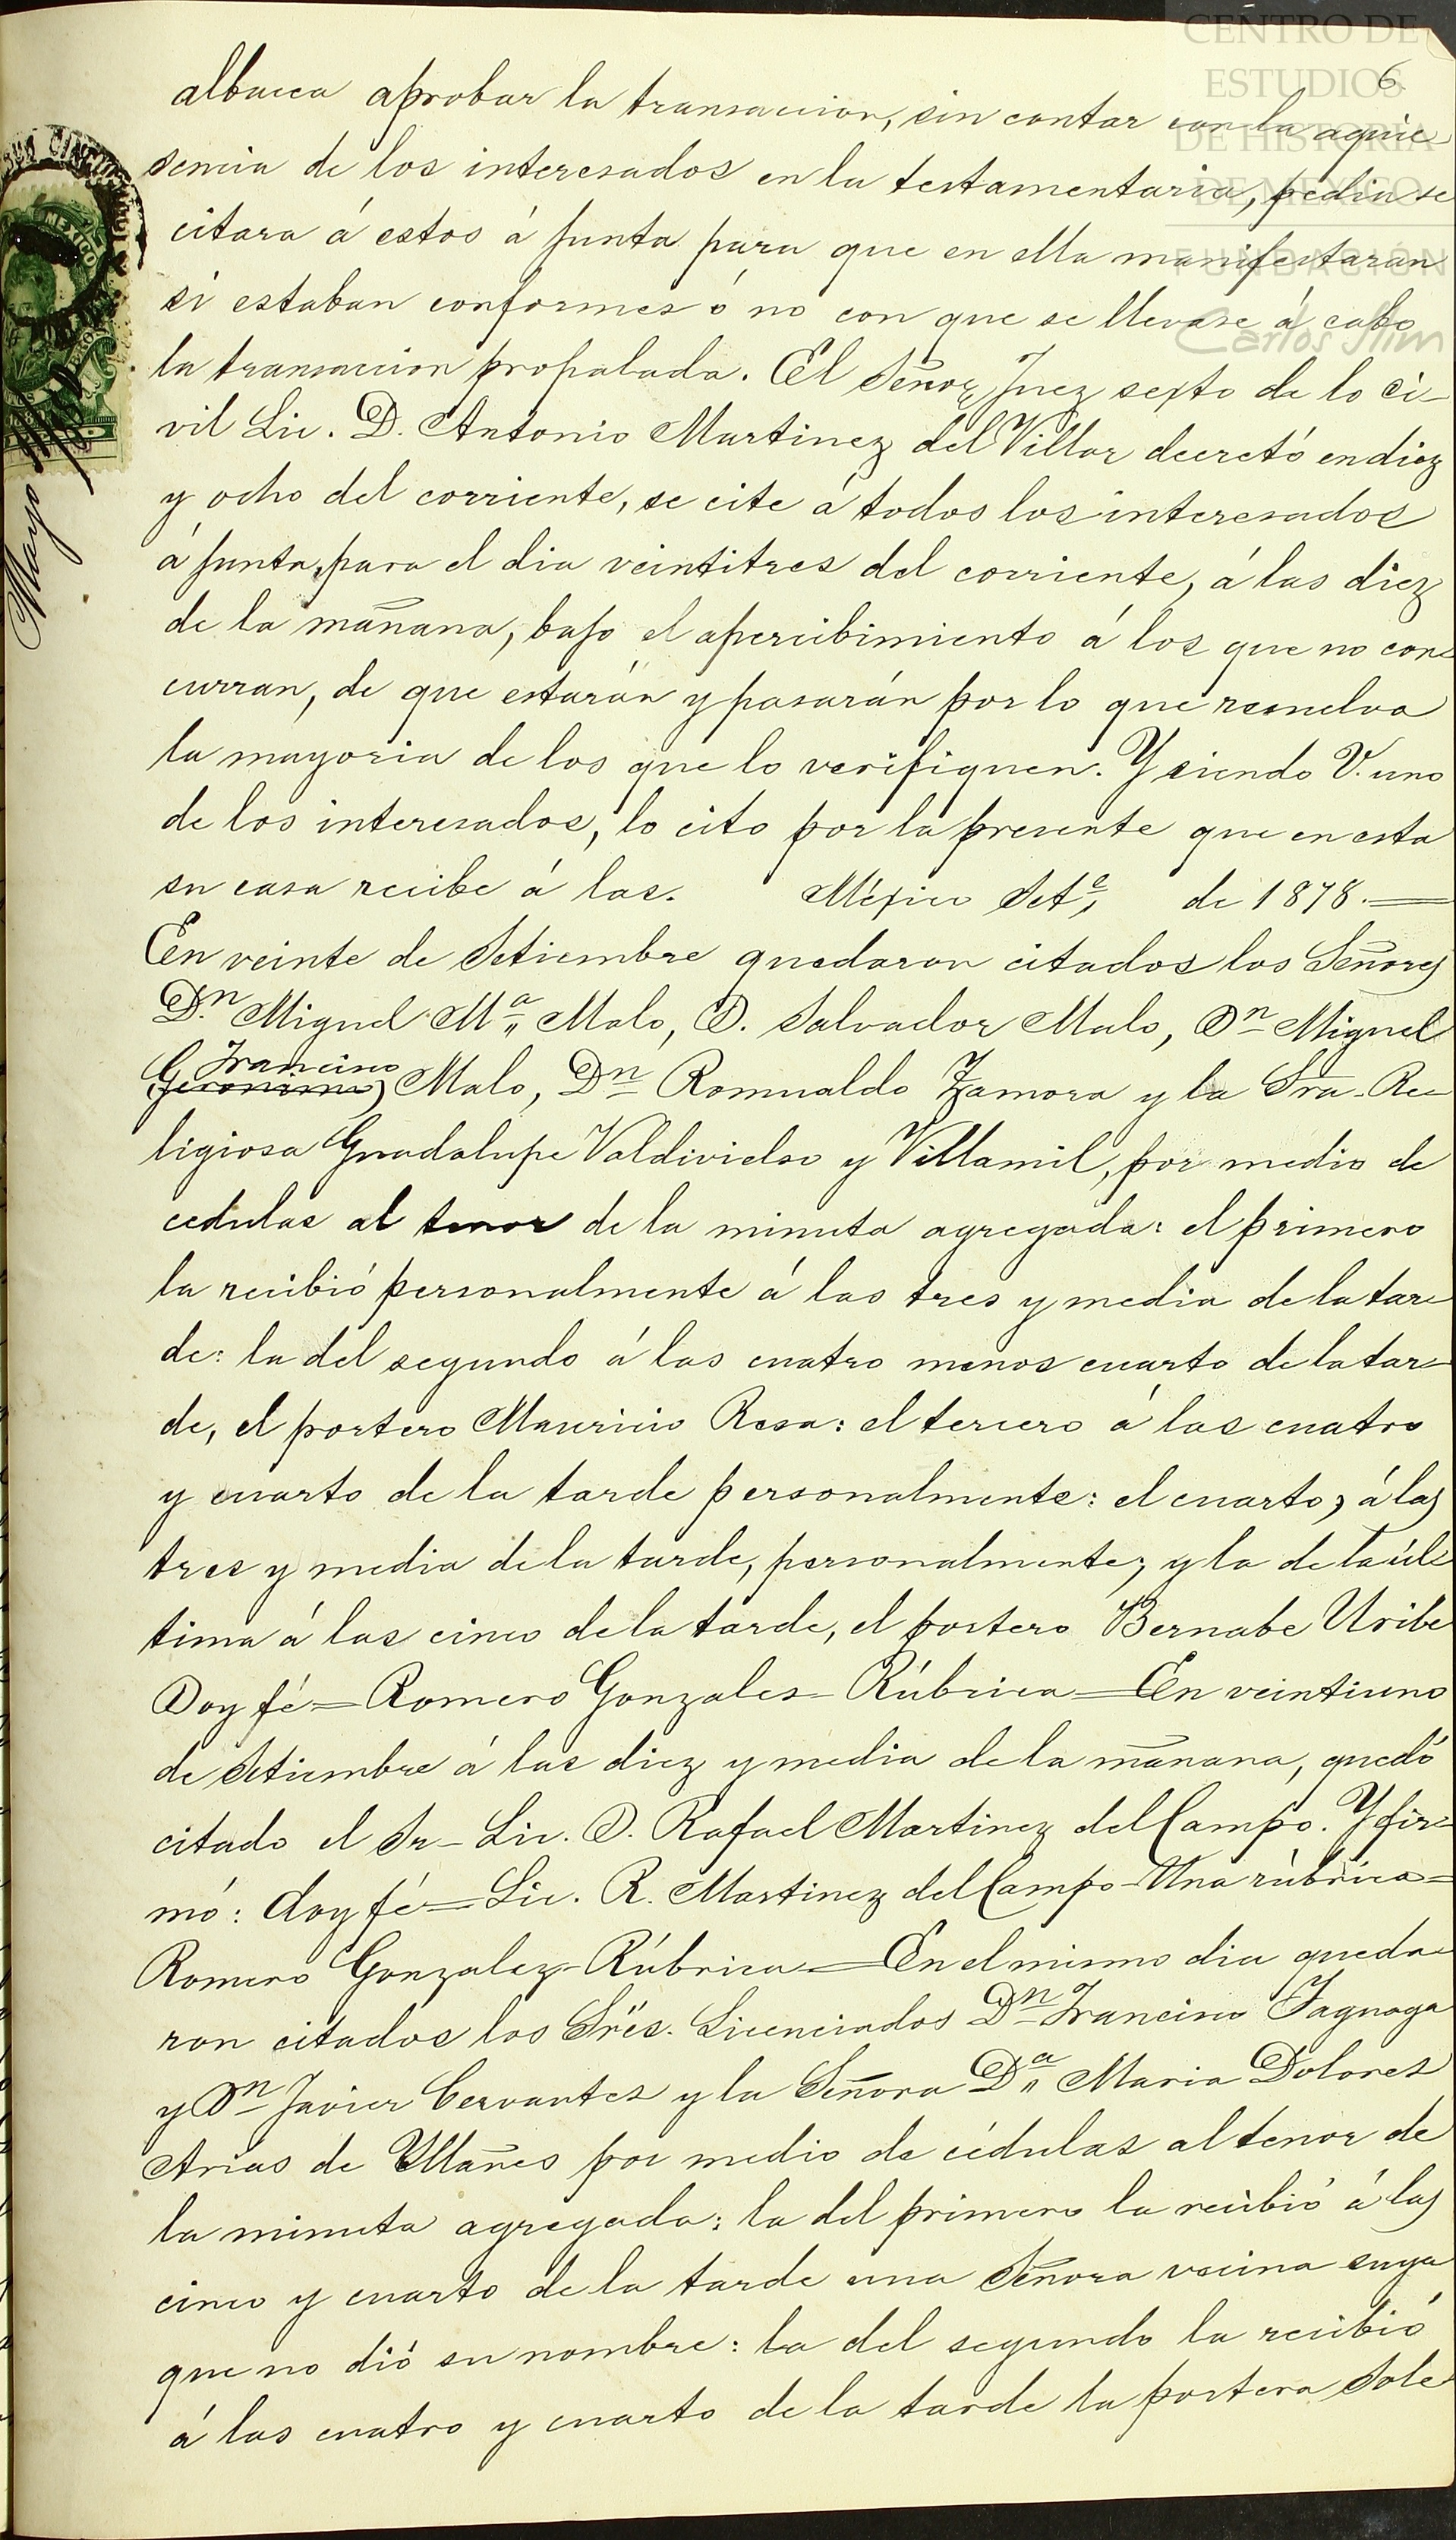 CENTRO DE
ESTUDIOS
DE HISTORIA
DE MEXICO
FUNDACIÓN
Carlos Slim
6
MEXICO
Mayo
albacea aprobar la transaccion, sin contar con la aquie-
sencia de los interesados en la testamentaria, pedia se
citara á estos á junta para que en ella manifestaran
si estaban conformes ó no con que se llevase á cabo
la transaccion propalada. El Señor Juez sexto de lo Ci-
vil Lic. D. Antonio Martinez del Villar decretó en diez
y ocho del corriente, se cite á todos los interesados
á junta, para el dia veintitres del corriente, á las diez
de la mañana, bajo el apercibimiento á los que no con-
curran, de que estarán y pasarán por lo que resuelva
la mayoria de los que lo verifiquen. Y siendo V. uno
de los interesados, lo cito por la presente que en esta
su casa recibe á las. México Set.e de 1878.=
En veinte de Setiembre quedaron citados los Señores
D.n Miguel M.a Malo, D. Salvador Malo, Dn Miguel
Francisco
(Geronimo) Malo, Dn Romualdo Zamora y la Sra. Re-
ligiosa Guadalupe Valdivielso y Villamil, por medio de
cedulas al tenor de la minuta agregada: el primero
la recibió personalmente á las tres y media de la tar-
de: la del segundo á las cuatro menos cuarto de la tar-
de, el portero Mauricio Rosa: el tercero á las cuatro
y cuarto de la tarde personalmente: el cuarto, á las
tres y media de la tarde, personalmente, y la de la úl-
tima á las cinco de la tarde, el portero Bernabe Uribe
Doy fé=Romero Gonzales=Rúbrica=En veintiuno
de Setiembre á las diez y media de la mañana, quedó
citado el Sr- Lic. D. Rafael Martinez del Campo. Y fir-
mó: doy fé=Lic. R. Martinez del Campo-Una rúbrica=
Romero Gonzalez-Rúbrica=En el mismo dia queda-
ron citados los Srēs. Licenciados Dn Francisco Fagoaga
y Dn Javier Cervantes y la Señora D.a Maria Dolores
Arias de Yllañes por medio de cédulas al tenor de
la minuta agregada: la del primero la recibió á las
cinco y cuarto de la tarde una Señora vecina suya
que no dió su nombre: la del segundo la recibió
á las cuatro y cuarto de la tarde la portera Sole-